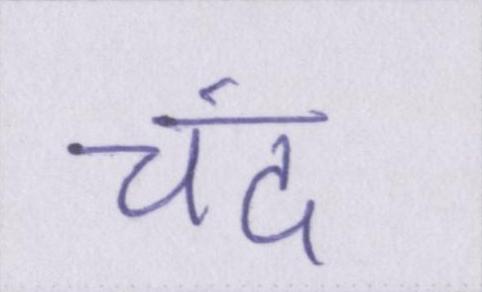 चंद